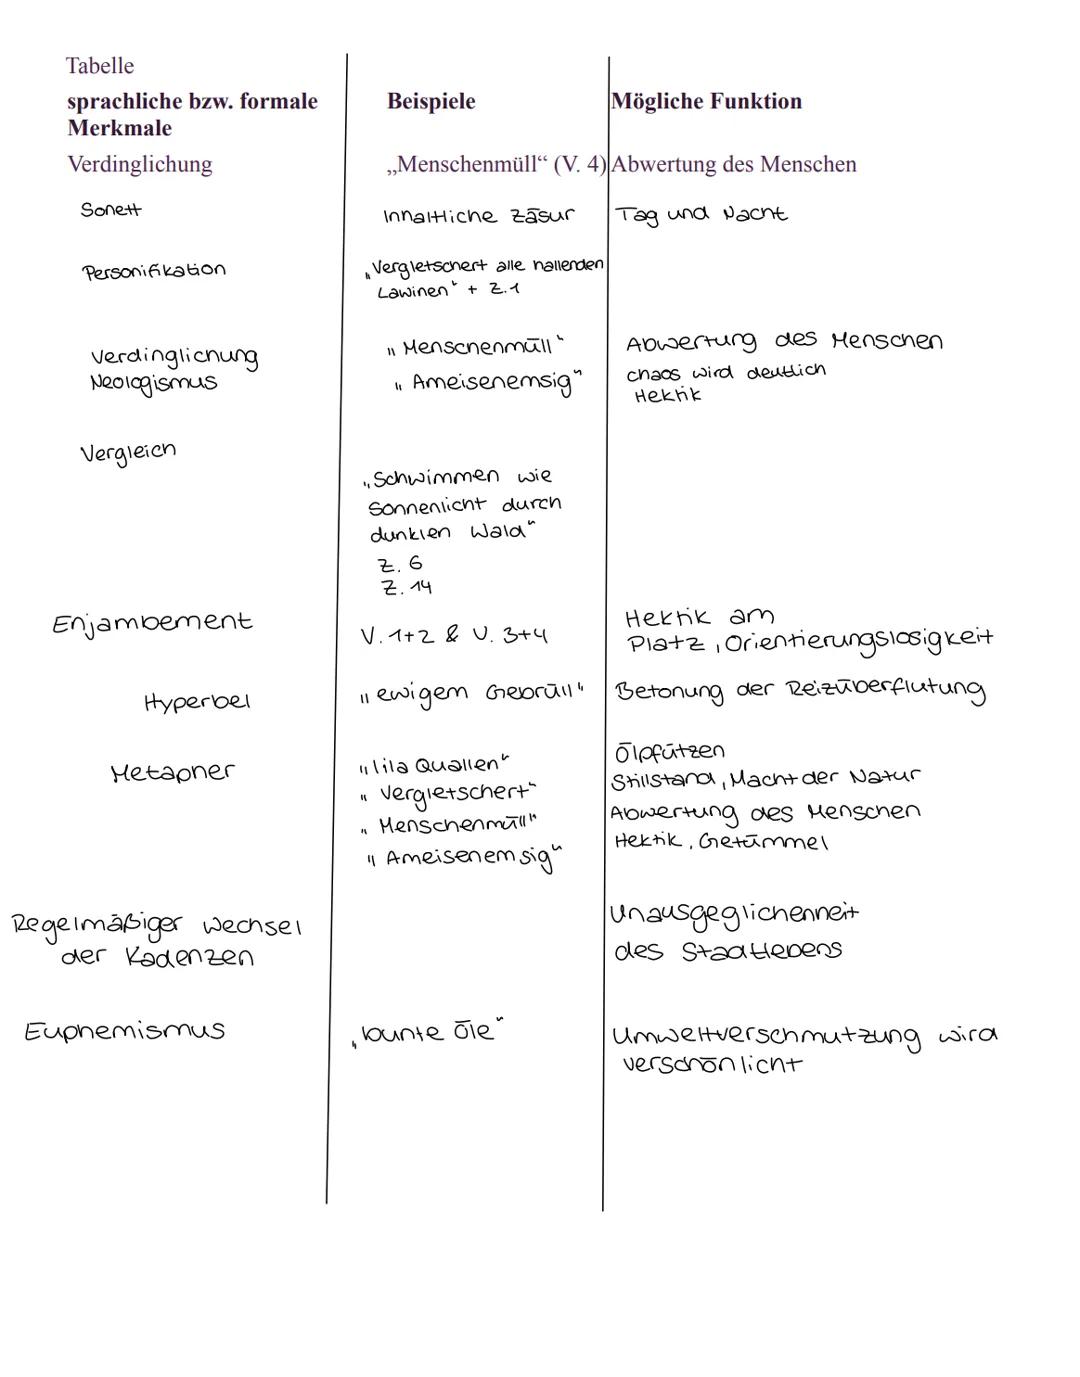 Tabelle
sprachliche bzw. formale Merkmale Beispiele Mögliche Funktion
Verdinglichung „Menschenmüll“ (V. 4) Abwertung des Menschen
Sonett Inhaltliche Zäsur Tag und Nacht
Personifikation „Vergletschert alle hallenden
Lawinen“ + Z.1
Verdinglichung „Menschenmüll“ Abwertung des Menschen
Neologismus „Ameisenemsig“ chaos wird deutlich
Hektik
Vergleich
„Schwimmen wie
Sonnenlicht durch
dunklen Wald“
Z. 6
Z. 14
Enjambement V. 1+2 & V. 3+4 Hektik am
Platz, Orientierungslosigkeit
Hyperbel „ewigem Gebrüll“ Betonung der Reizüberflutung
Metapher „lila Quallen“ Ölpfützen
„Vergletschert“ Stillstand, Macht der Natur
„Menschenmüll“ Abwertung des Menschen
„Ameisenemsig“ Hektik, Getümmel
Regelmäßiger Wechsel Unausgeglichenheit
der Kadenzen des Stadtlebens
Euphemismus „bunte Öle“ Umweltverschmutzung wird
verschönlicht